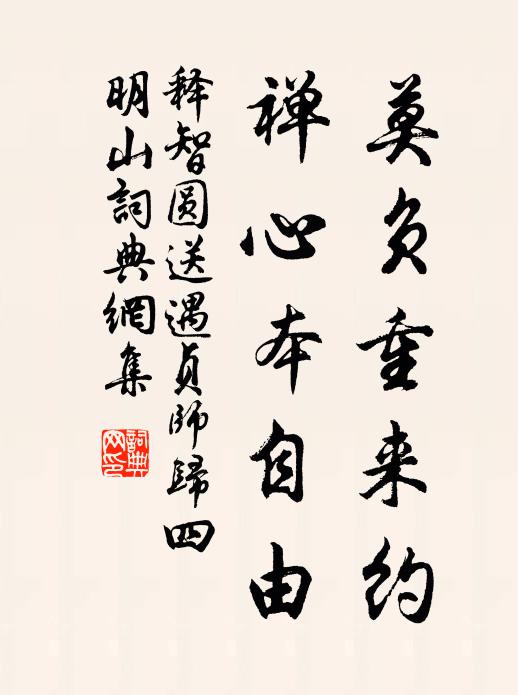 莫负重来约
禅心本自由
释智圆送遇贞师歸四
明山詞典網集
詞典网印